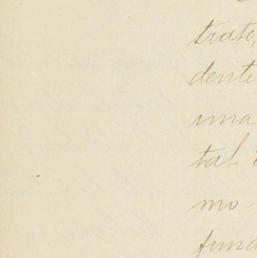 trato,
dente
uma
tal
mo
fund